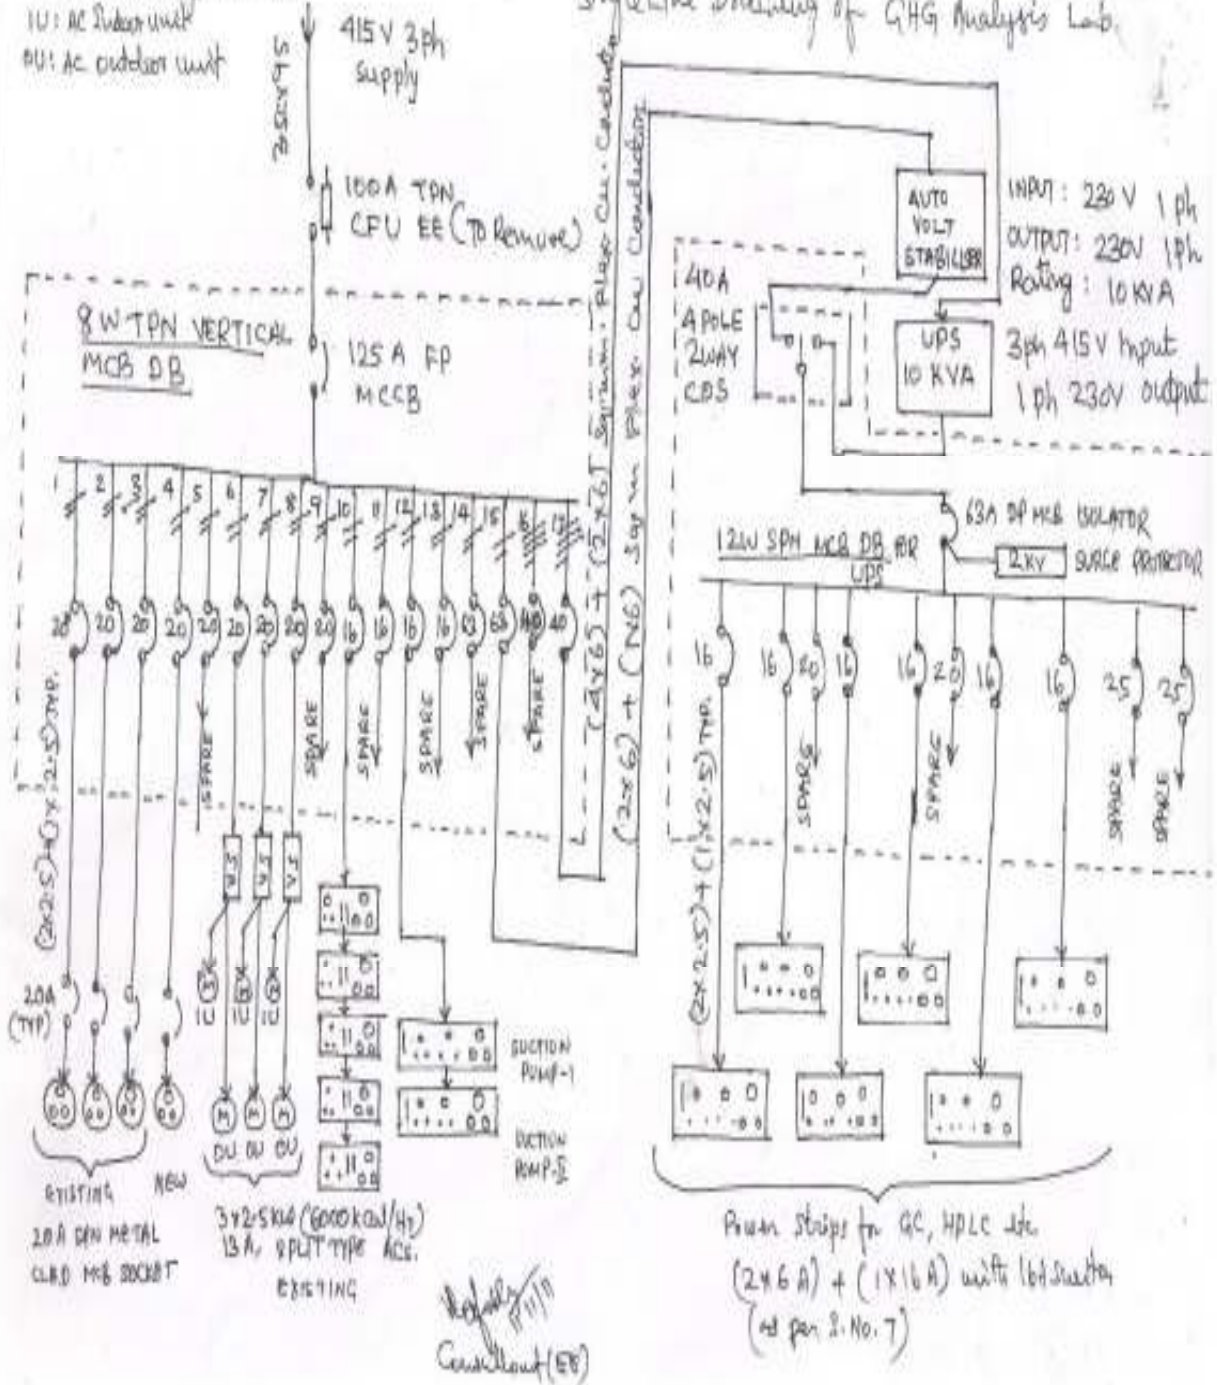 IU: AC Indoor unit
OU: AC outdoor unit
415V 3ph
Supply
Single Line Drawing of GHG Analysis Lab.
3.5CX95
100A TPN
CFU EE (To Remove)
8W TPN VERTICAL
MCB DB
125A FP
MCCB
(4x6) + (2x6)
(2x6) + (N6) Sqmm Flex. Cu Conductor
AUTO
VOLT
STABILISER
INPUT: 230 V 1 ph
OUTPUT: 230V 1Ph
Rating: 10 KVA
40A
4 POLE
2WAY
COS
UPS
10 KVA
3ph 415V Input
1 ph 230V output
63A DP MCB ISOLATOR
2KV
SURGE PROTECTOR
12W SPN MCB DB FOR
UPS
1 2 3 4 5 6 7 8 9 10 11 12 13 14 15 16 17
20 20 20 20 20 20 20 20 20 16 16 16 16 63 63 40 40
SPARE
SPARE
SPARE
SPARE
SPARE
SPARE
16 16 20 16 16 20 16 16 25 25
SPARE
SPARE
SPARE
SPARE
(2x2.5)+(1x2.5) TYP.
(2x2.5)+(1x2.5) TYP.
V.S V.S V.S
20A
(TYP)
IU IU IU
M M M
OU OU OU
SUCTION
PUMP-1
SUCTION
PUMP-II
EXISTING
NEW
20A DPN METAL
CLAD MCB SOCKET
3x2.5KW (6000 KCal/Hr)
13A, SPLIT TYPE ACs.
EXISTING
Consultant (EE)
Power Strips for GC, HPLC etc.
(2x6A) + (1x16A) with
(as per S.No.7)